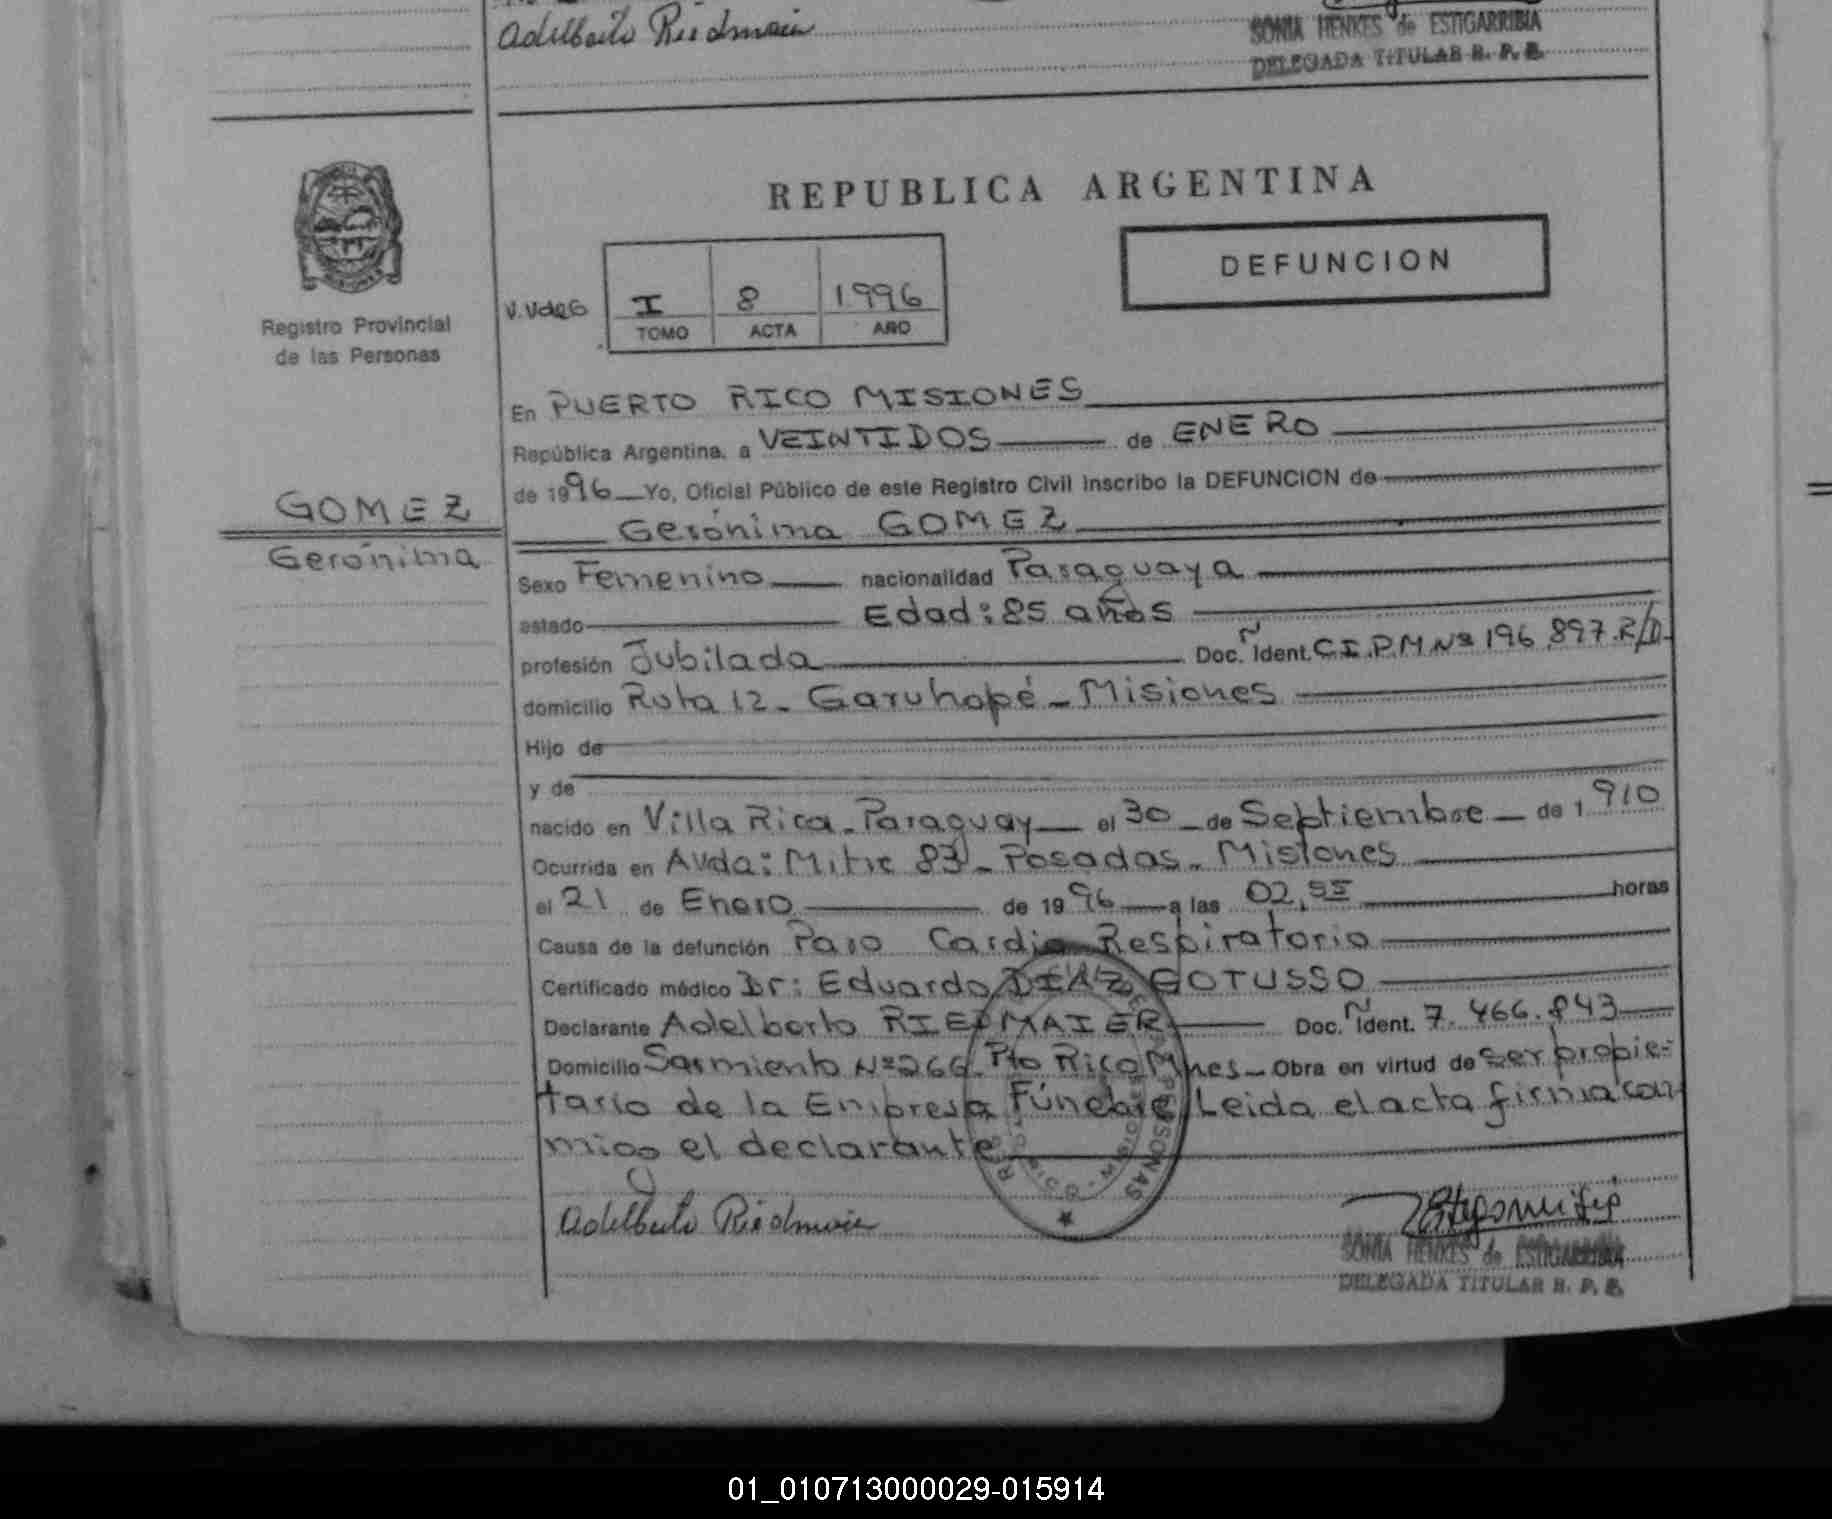 Adelberto Riedmaier
SONIA HENKES de ESTIGARRIBIA
DELEGADA TITULAR R. P. P.
REPUBLICA ARGENTINA
DEFUNCION
Registro Provincial
de las Personas
I 8 1996
TOMO ACTA AÑO
En PUERTO RICO MISIONES
República Argentina, a VEINTIDOS de ENERO
de 1996 Yo, Oficial Público de este Registro Civil inscribo la DEFUNCION de
GOMEZ
Gerónima GOMEZ
Gerónima
Sexo Femenino nacionalidad Paraguaya
estado Edad: 85 años
profesión Jubilada Doc. Ident. C.I.P.M Nº 196.897.R/D.
domicilio Ruta 12 - Garuhapé - Misiones
Hijo de
y de
nacido en Villa Rica - Paraguay el 30 de Septiembre de 1.910
Ocurrida en Avda: Mitre 83 - Posadas - Misiones
el 21 de Enero de 1996 a las 02,55 horas
Causa de la defunción Paro Cardio Respiratorio
Certificado médico Dr: Eduardo DIAZ GOTUSSO
Declarante Adelberto RIEDMAIER Doc. Ident. 7.466.843
Domicilio Sarmiento Nº 266 - Pto Rico Mnes - Obra en virtud de ser propie-
tario de la Empresa Fúnebre Leida el acta firma con
migo el declarante
Adelberto Riedmaier
SONIA HENKES de ESTIGARRIBIA
DELEGADA TITULAR R. P. P.
01_010713000029-015914